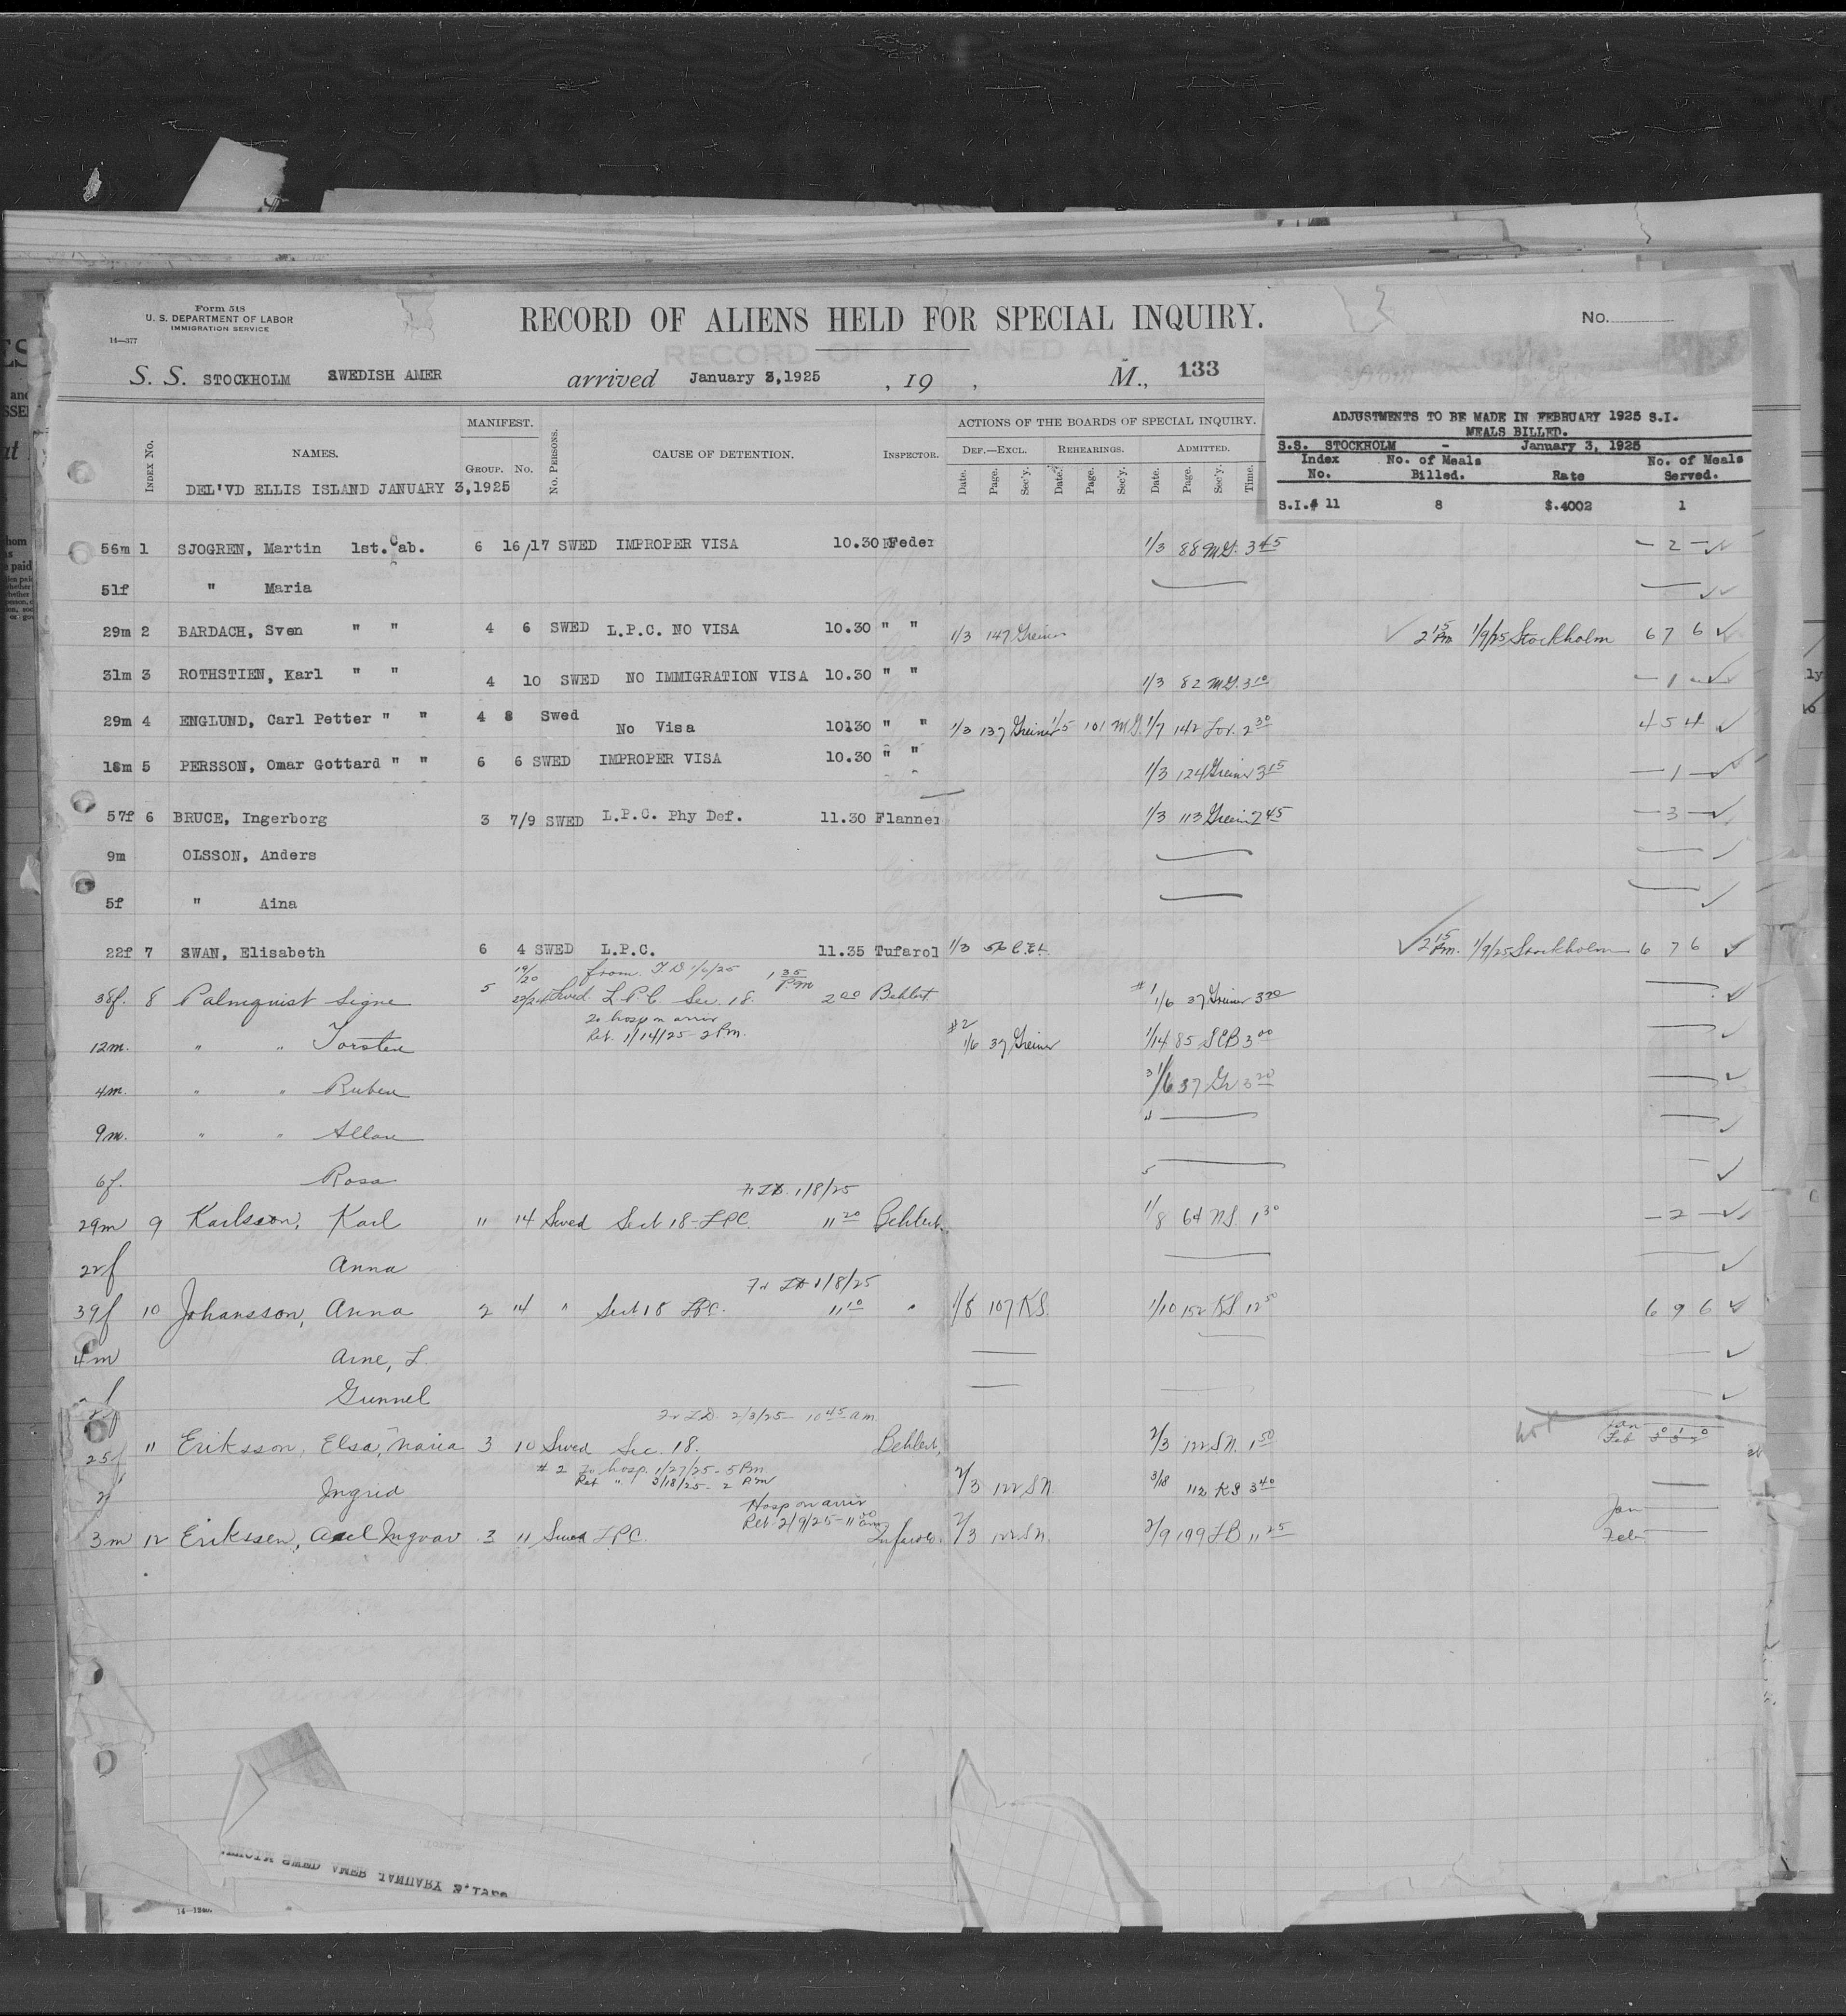 Form 518
U. S. DEPARTMENT OF LABOR
IMMIGRATION SERVICE
14—377
RECORD OF ALIENS HELD FOR SPECIAL INQUIRY.
No.
S. S. STOCKHOLM SWEDISH AMER arrived January 3,1925 , 19 , M., 133
ADJUSTMENTS TO BE MADE IN FEBRUARY 1925 S.I.
MEALS BILLED.
S.S. STOCKHOLM - January 3, 1925
Index No. No. of Meals Billed. Rate No. of Meals Served.
S.I.# 11 8 $.4002 1
INDEX NO. NAMES. MANIFEST. GROUP. NO. NO. PERSONS. CAUSE OF DETENTION. INSPECTOR. ACTIONS OF THE BOARDS OF SPECIAL INQUIRY.
DEF.—EXCL. REHEARINGS. ADMITTED.
Date. Page. Sec'y. Date. Page. Sec'y. Date. Page. Sec'y. Time.
DEL'VD ELLIS ISLAND JANUARY 3,1925
56m 1 SJOGREN, Martin 1st. Cab. 6 16/17 SWED IMPROPER VISA 10.30 Feder 1/3 88 M.G. 3 45 — 2 —
51f " Maria
29m 2 BARDACH, Sven " " 4 6 SWED L.P.C. NO VISA 10.30 " " 1/3 147 Greiner 2 15 Pm 1/9/25 Stockholm 6 7 6
31m 3 ROTHSTIEN, Karl " " 4 10 SWED NO IMMIGRATION VISA 10.30 " " 1/3 82 M.G. 3 10 — 1 —
29m 4 ENGLUND, Carl Petter " " 4 8 Swed No Visa 10130 " " 1/3 137 Greiner 1/5 101 M.G. 1/7 142 2 30 4 5 4
18m 5 PERSSON, Omar Gottard " " 6 6 SWED IMPROPER VISA 10.30 " " 1/3 124 Greiner 3 15 — 1 —
57f 6 BRUCE, Ingerborg 3 7/9 SWED L.P.C. Phy Def. 11.30 Flanner 1/3 113 Grein 2 45 — 3 —
9m OLSSON, Anders
5f " Aina
22f 7 SWAN, Elisabeth 6 4 SWED L.P.C. 11.35 Tufarol 1/3 56 2 15 Pm. 1/9/25 Stockholm 6 7 6
19/20 from T D 1/6/25 1 35 Pm
38f. 8 Palmquist Signe 5 Swed. L P C. Sec. 18. 2 00 Behlert. #1 1/6 37 Greiner 3 20
To hosp on arriv
Ret. 1/14/25 - 2 Pm.
12m. " " Torsten #2 1/6 37 Greiner 1/14 85 SCB 3 00
4m. " " Ruben 3 1/6 37 Gr 3 20
9m. " " Allan 4
6f. Rosa 5
1/8/25
29m 9 Karlsson, Karl " 14 Swed Sect 18 - LPC. 11 20 Behlert. 1/8 64 N.S. 1 30 — 2 —
22f Anna
Fr TD 1/8/25
39f 10 Johansson, Anna 2 14 " Sect 18 LPC. 11 10 " 1/8 107 KS. 1/10 152 KS 12 50 6 9 6
4m Arne, L.
Gunnel
Fr T.D. 2/3/25 - 10 45 am
25f 11 Eriksson, Elsa, Maria 3 10 Swed Sec. 18. Behlert, 2/3 122 S.N. 1 50 Jan Feb
#2 To hosp. 1/27/25 - 5 Pm
Ret " 3/18/25 - 2 Pm
Ingrid 2/3 122 S.N. 3/18 112 KS 3 40
Hosp on arriv
Ret 2/9/25 - 11 20 am
3m 12 Erikssen, Axel Ingvar 3 11 Swed LPC. Tufarolo. 2/3 122 S.N. 2/9 199 LB 11 25 Jan Feb